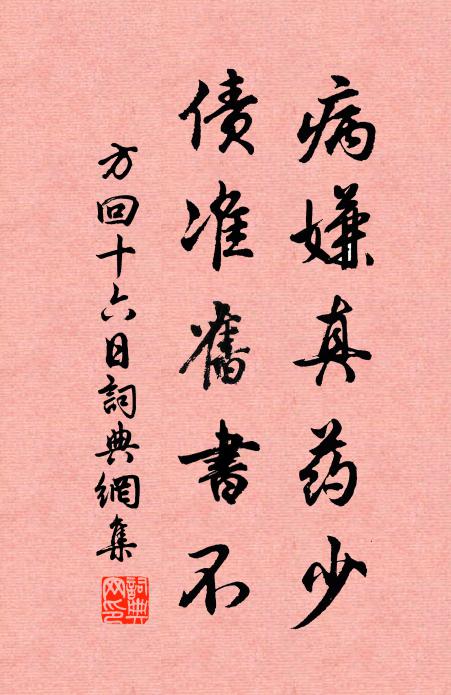 病嫌真药少
债准舊書不
方回十六日詞典網集
詞典网印